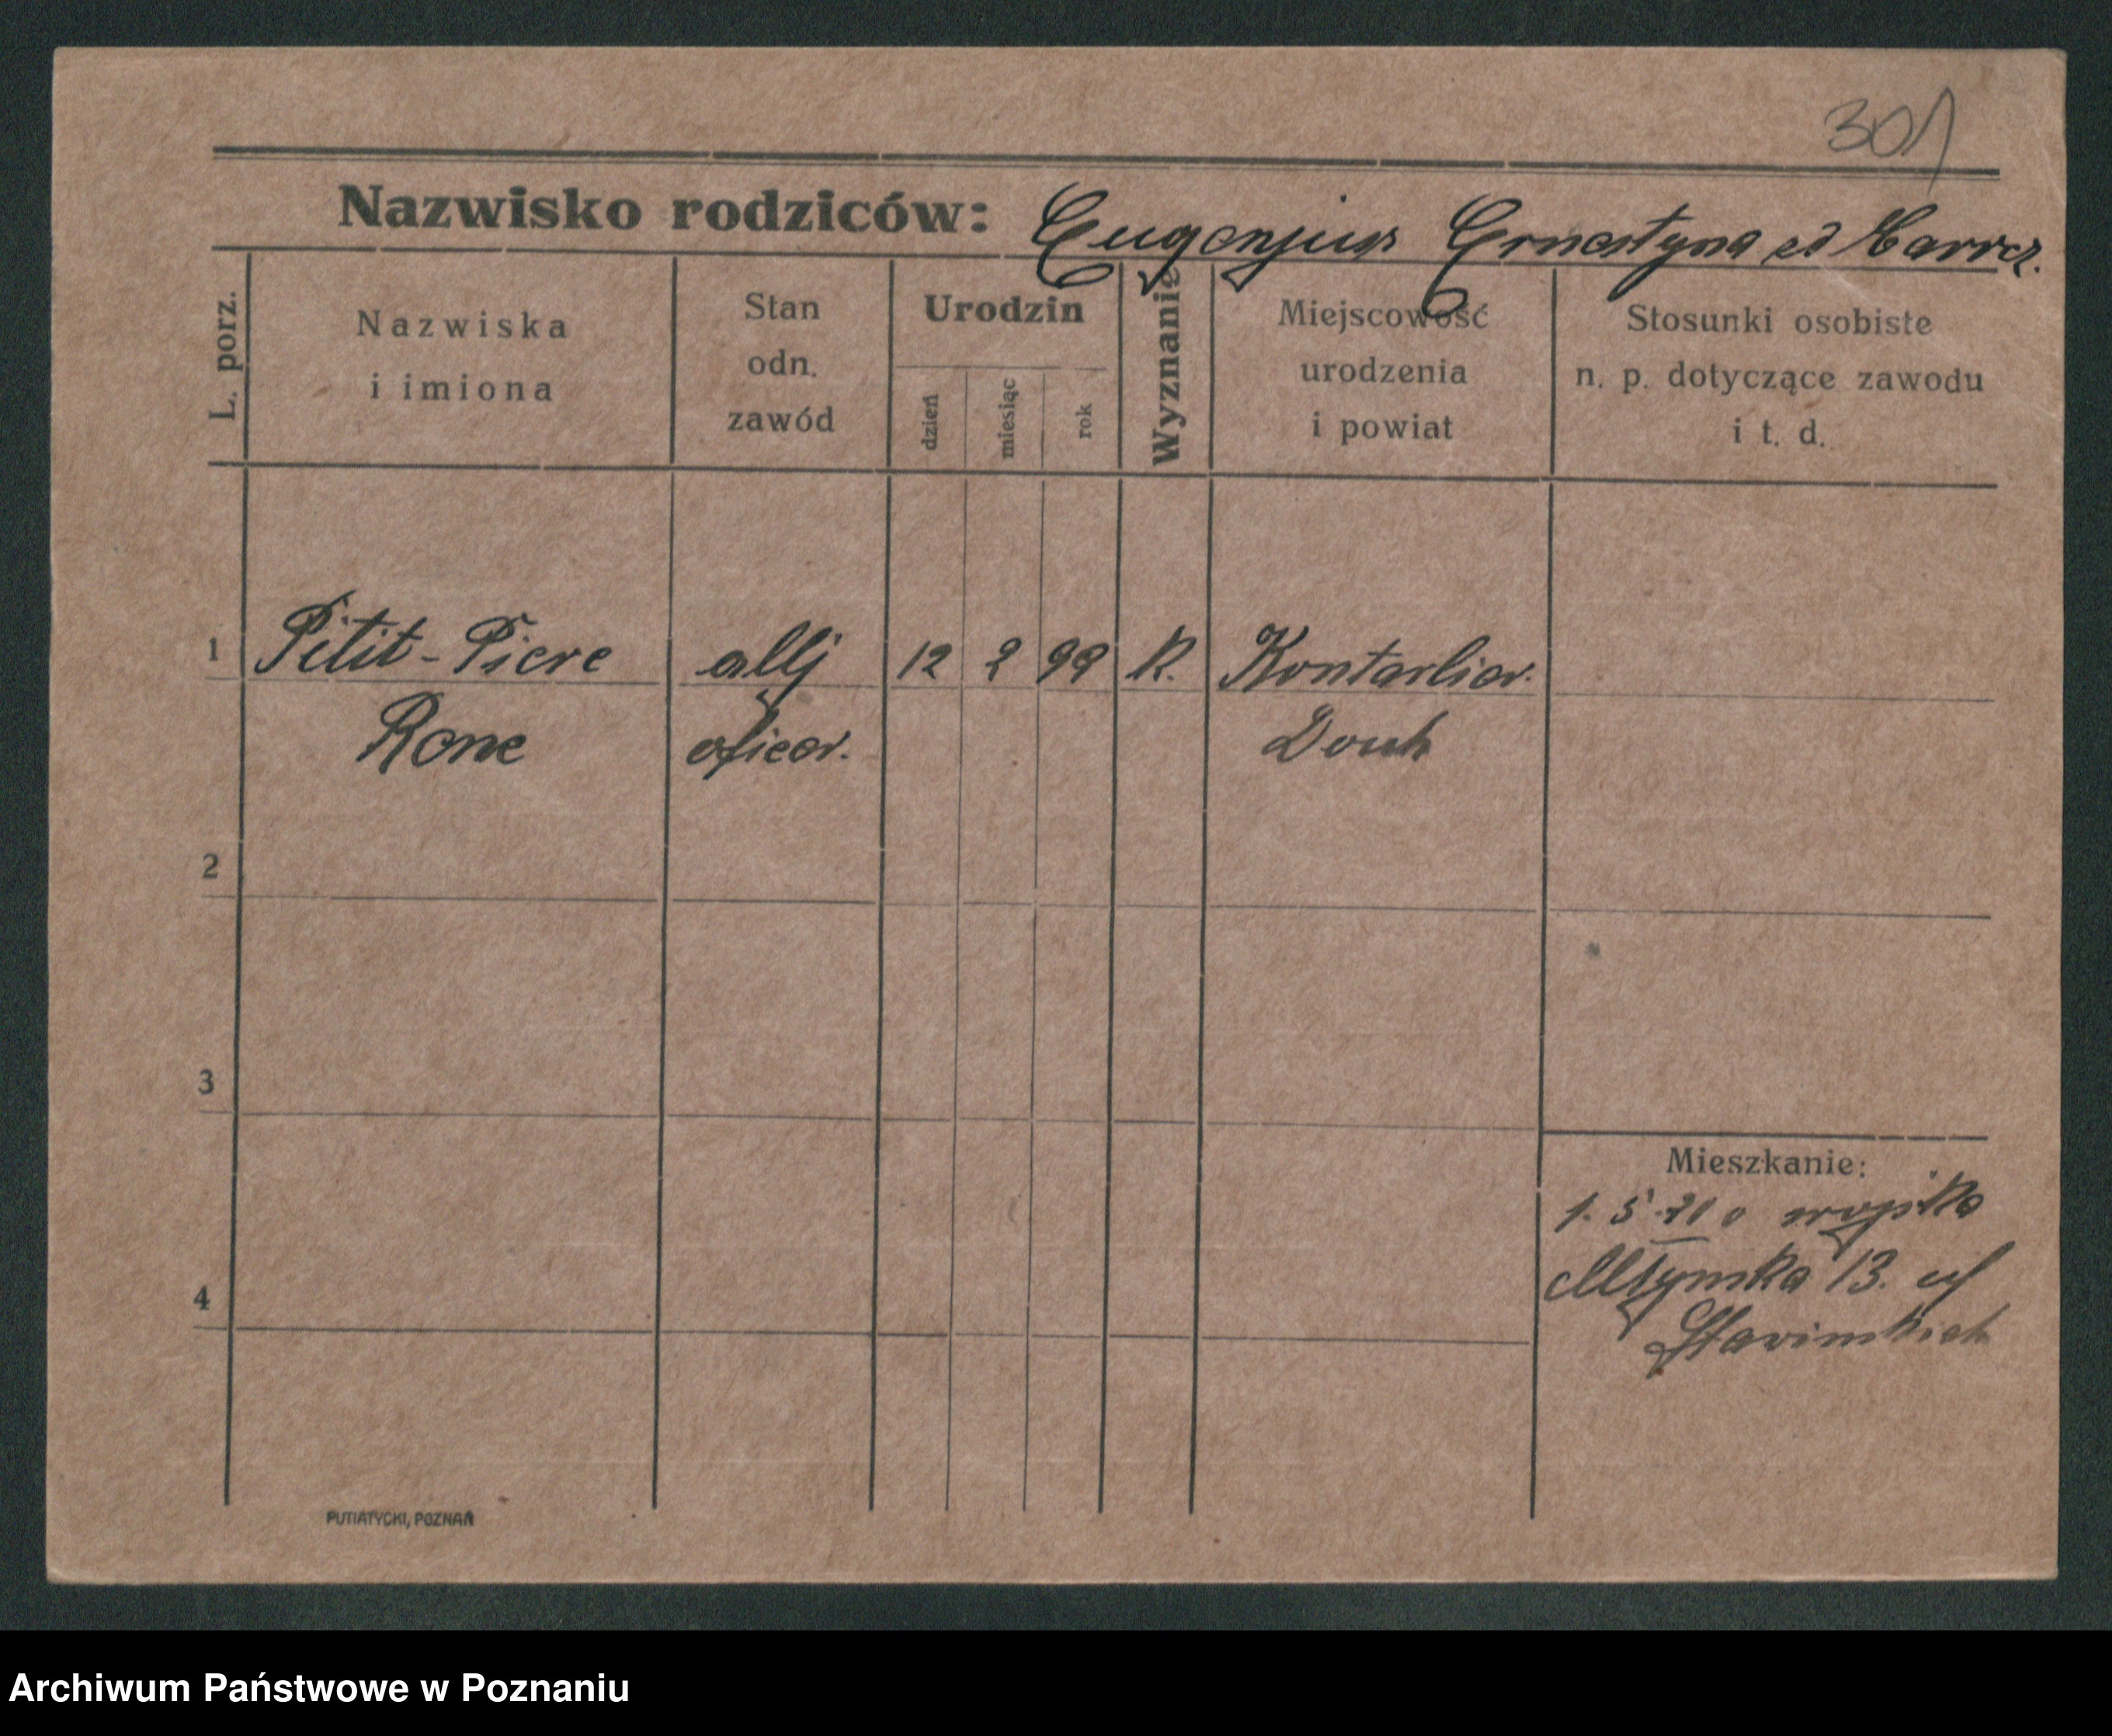 301
Nazwisko rodziców: Eugenjusz Ernestyna
L. porz.
Nazwiska
i imiona
Stan
odn.
zawód
Urodzin
dzień
miesiąc
rok
Wyznanie
Miejscowość
urodzenia
i powiat
Stosunki osobiste
n. p. dotyczące zawodu
i t. d.
1 Petit-Piere 12 2 99 R.
Rene oficer. Doub
2
3
4
Mieszkanie:
1. 5. 21 z wojska
Młyńska 13.
PUTIATYCKI, POZNAŃ
Archiwum Państwowe w Poznaniu